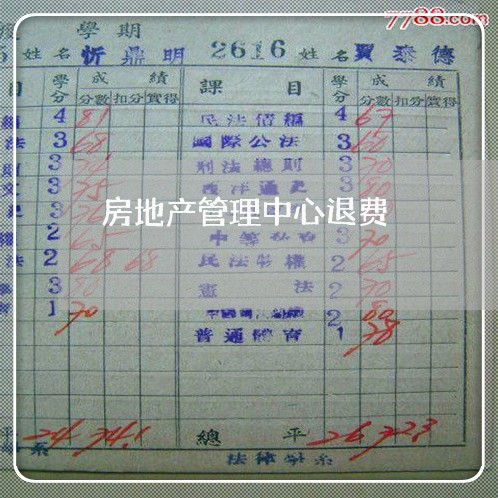 7788.com
學期
姓名 忻鼎明 2616 姓名 賈泰德
目 學分 成績 課目 學分 成績
分數 扣分 實得 分數 扣分 實得
4 81 民法債編 4 67
法 3 68 國際公法 3 60
3 刑法總則 3 70
文 3 75 西洋通史 3 80
3
房地产管理中心退费
2 65 3 70
法 2 68 68 民法物權 2 65
3 80 憲法 2 70
1 70 2 80
普通體育 1 78
平 24 74.1 總平 26 72.3
系 法律學系